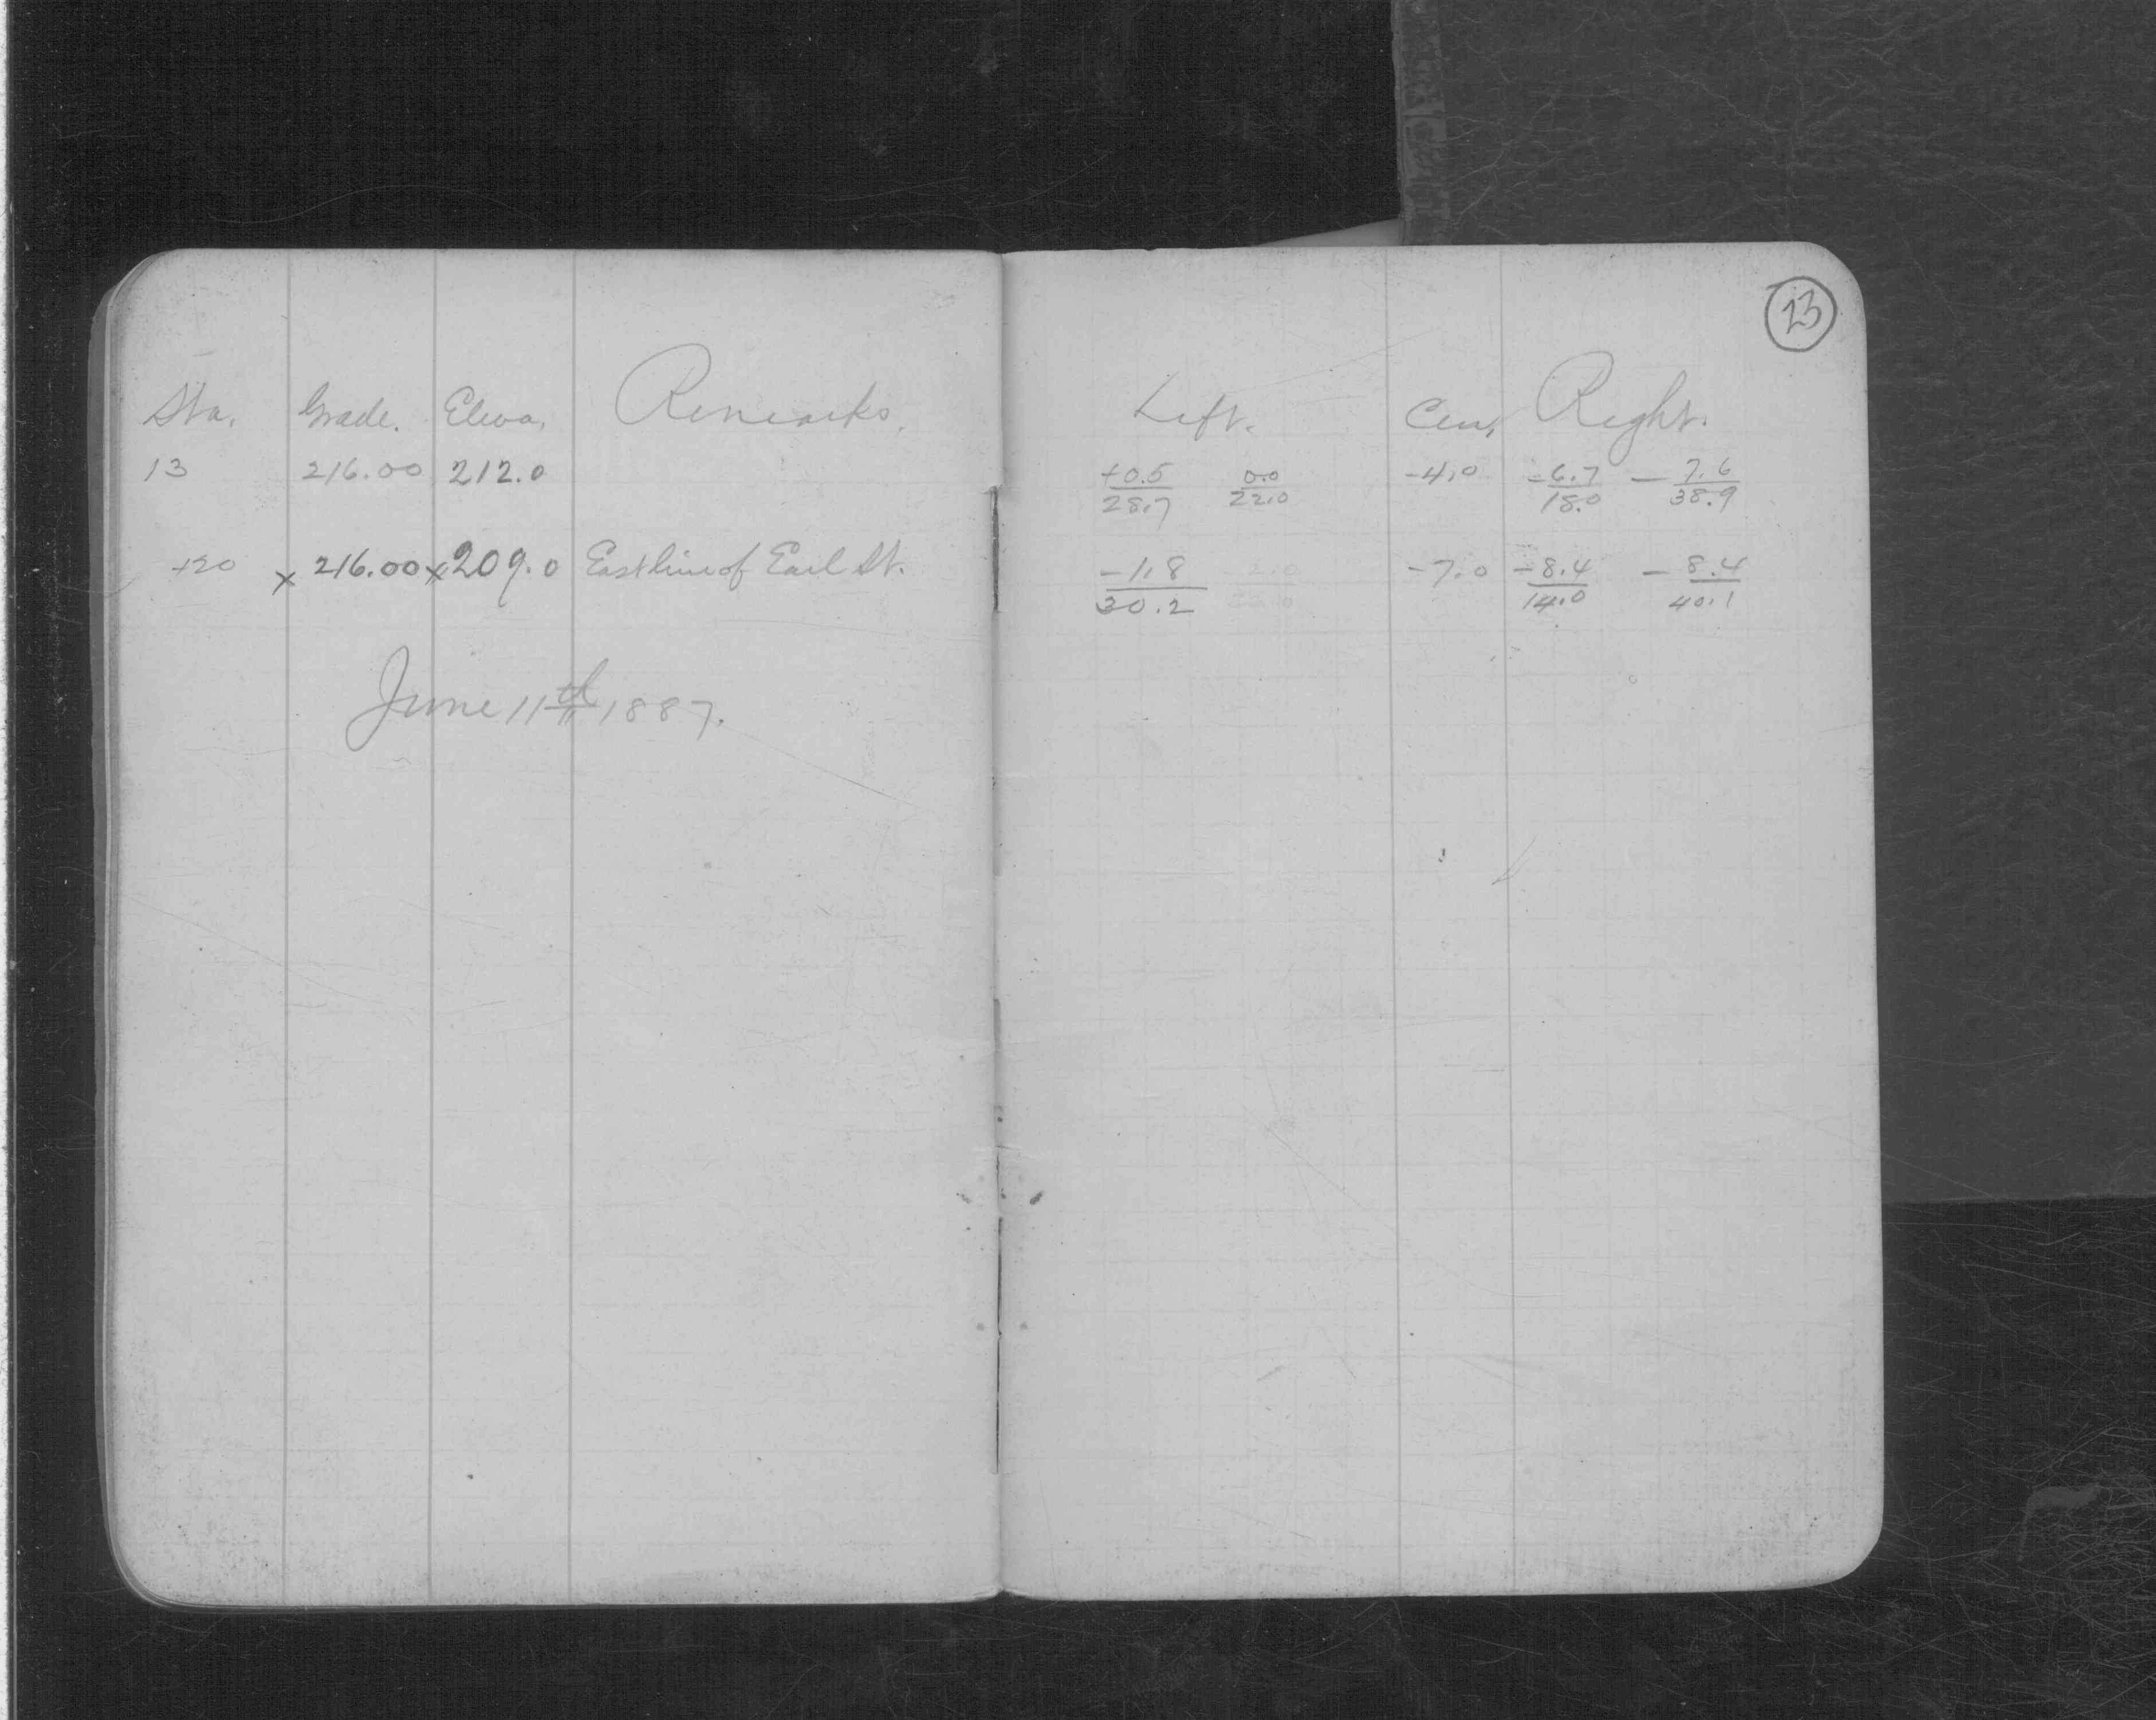 23
Sta. Grade. Eleva. Remarks. Left. Cen. Right.
13 216.00 212.0 +0.5/28.7 0.0/22.0 -4.0 -6.7/18.0 -7.6/38.9
+20 x 216.00 x 209.0 East line of Earl St. -1.8/30.2 -7.0 -8.4/14.0 -8.4/40.1
June 11th 1887.